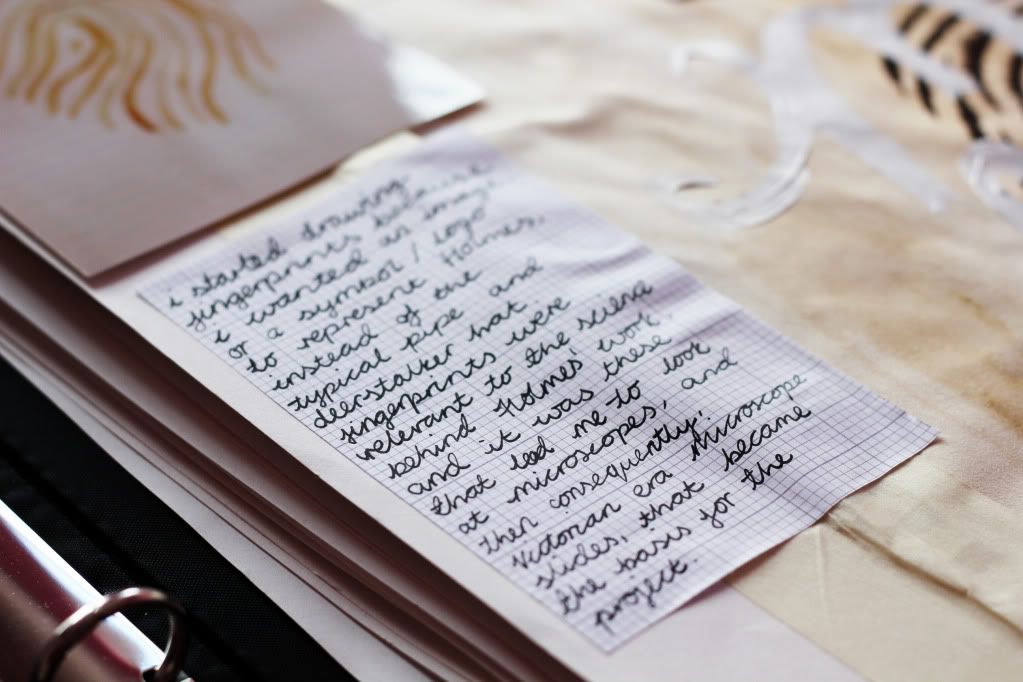 i started drawing
fingerprints because
i wanted an image
or a symbol / logo
to represent Holmes,
instead of the
typical pipe and
deerstalker hat
fingerprints were
relevant to the science
behind Holmes' work.
and it was these
that lead me to look
at microscopes, and
then consequently;
Victorian era Microscope
slides, that became
the basis for the
project.